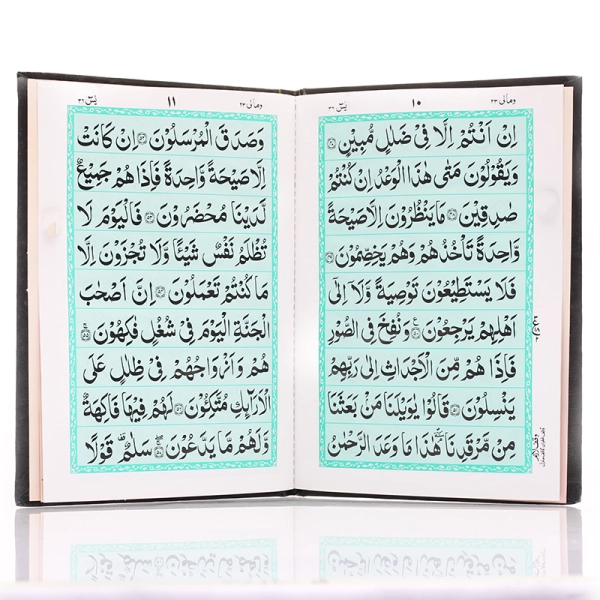 ومالی ۲۳
۱۰
یٰسٓ ۳۶
اِنْ اَنْتُمْ اِلَّا فِیْ ضَلٰلٍ مُّبِیْنٍ
وَیَقُوْلُوْنَ مَتٰی هٰذَا الْوَعْدُ اِنْ كُنْتُمْ
صٰدِقِیْنَ ۴۸ مَا یَنْظُرُوْنَ اِلَّا صَیْحَةً
وَّاحِدَةً تَاْخُذُهُمْ وَهُمْ یَخِصِّمُوْنَ ۴۹
فَلَا یَسْتَطِیْعُوْنَ تَوْصِیَةً وَّلَاۤ اِلٰۤی
اَهْلِهِمْ یَرْجِعُوْنَ ۵۰ وَنُفِخَ فِی الصُّوْرِ
فَاِذَا هُمْ مِّنَ الْاَجْدَاثِ اِلٰی رَبِّهِمْ
یَنْسِلُوْنَ ۵۱ قَالُوْا یٰوَیْلَنَا مَنْۢ بَعَثَنَا
مِنْ مَّرْقَدِنَا ۘ هٰذَا مَا وَعَدَ الرَّحْمٰنُ
ومالی ۲۳
۱۱
یٰسٓ ۳۶
وَصَدَقَ الْمُرْسَلُوْنَ ۵۲ اِنْ كَانَتْ
اِلَّا صَیْحَةً وَّاحِدَةً فَاِذَا هُمْ جَمِیْعٌ
لَّدَیْنَا مُحْضَرُوْنَ ۵۳ فَالْیَوْمَ لَا
تُظْلَمُ نَفْسٌ شَیْـًٔا وَّلَا تُجْزَوْنَ اِلَّا
مَا كُنْتُمْ تَعْمَلُوْنَ ۵۴ اِنَّ اَصْحٰبَ
الْجَنَّةِ الْیَوْمَ فِیْ شُغُلٍ فٰكِهُوْنَ ۵۵
هُمْ وَاَزْوَاجُهُمْ فِیْ ظِلٰلٍ عَلَی
الْاَرَآئِكِ مُتَّكِـُٔوْنَ ۵۶ لَهُمْ فِیْهَا فَاكِهَةٌ
وَّلَهُمْ مَّا یَدَّعُوْنَ ۵۷ سَلٰمٌ قَوْلًا